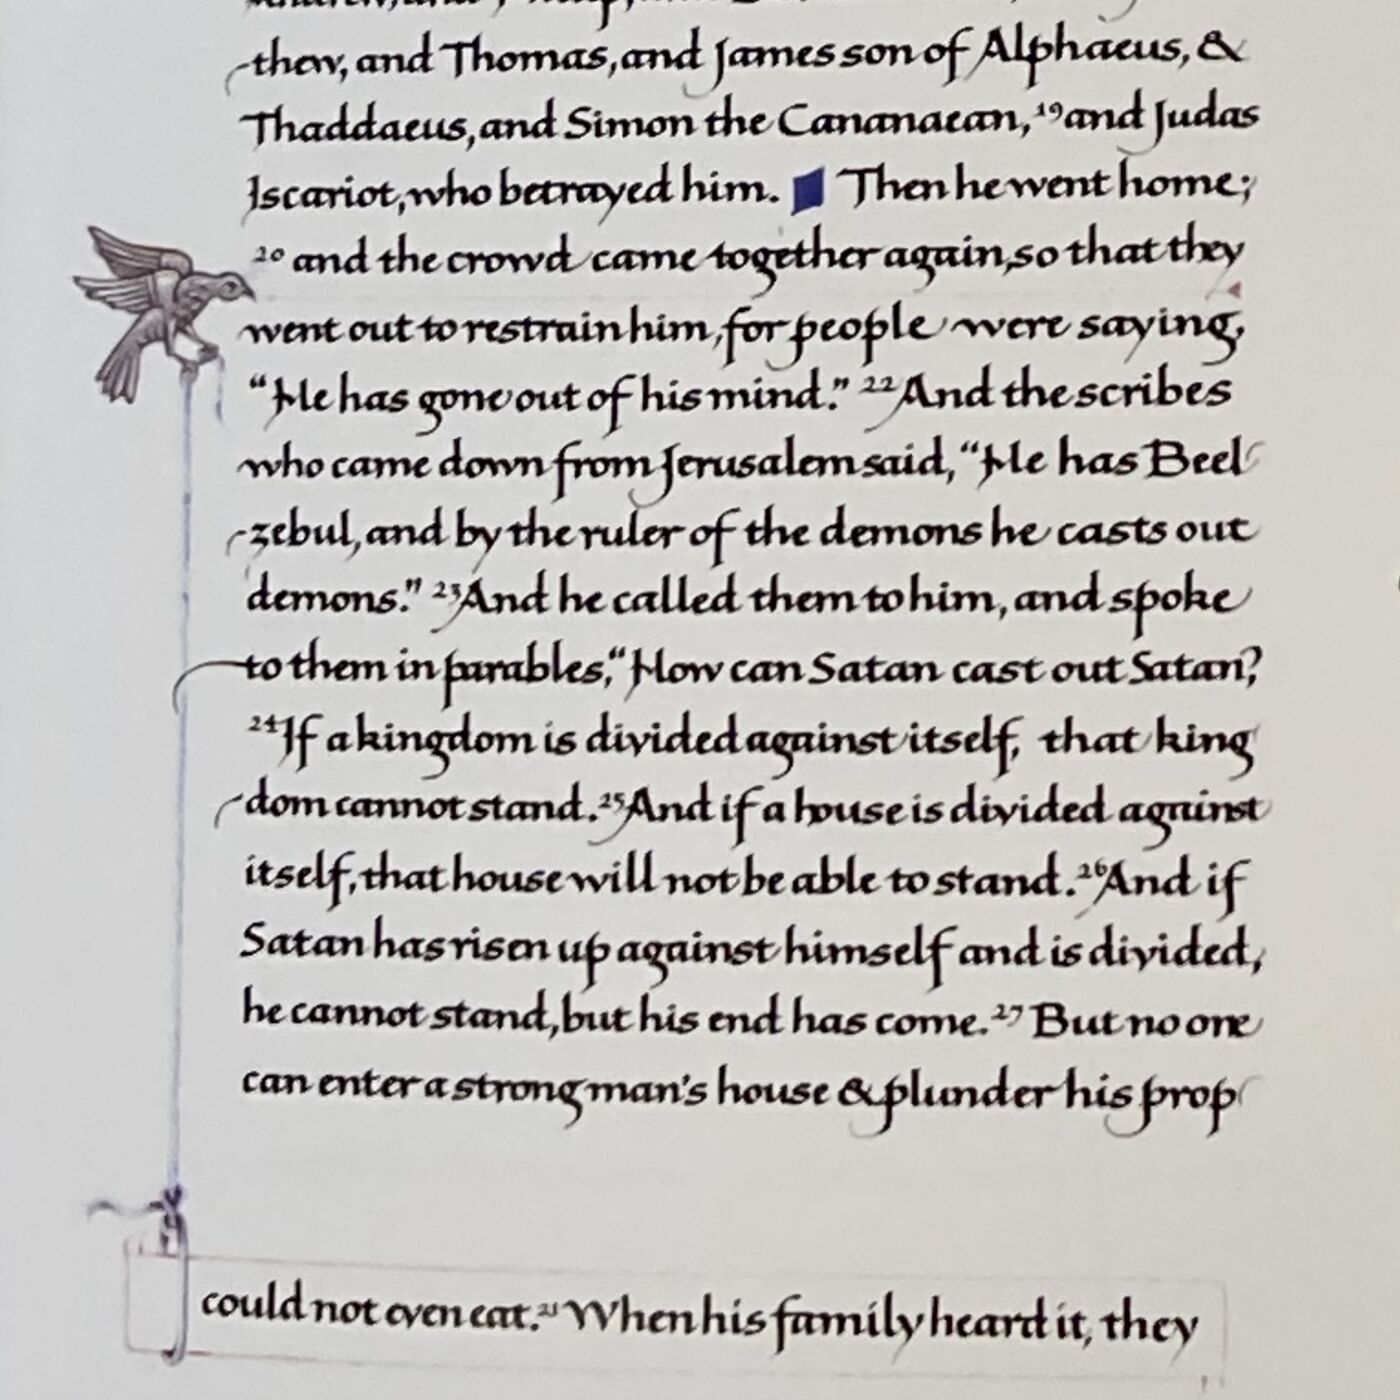 thew, and Thomas, and James son of Alphaeus, &
Thaddaeus, and Simon the Cananaean, 19 and Judas
Iscariot, who betrayed him. Then he went home;
20 and the crowd came together again, so that they
went out to restrain him, for people were saying,
“He has gone out of his mind.” 22 And the scribes
who came down from Jerusalem said, “He has Beel
zebul, and by the ruler of the demons he casts out
demons.” 23 And he called them to him, and spoke
to them in parables, “How can Satan cast out Satan?
24 If a kingdom is divided against itself, that king
dom cannot stand. 25 And if a house is divided against
itself, that house will not be able to stand. 26 And if
Satan has risen up against himself and is divided,
he cannot stand, but his end has come. 27 But no one
can enter a strong man's house & plunder his prop
could not even eat. 21 When his family heard it, they